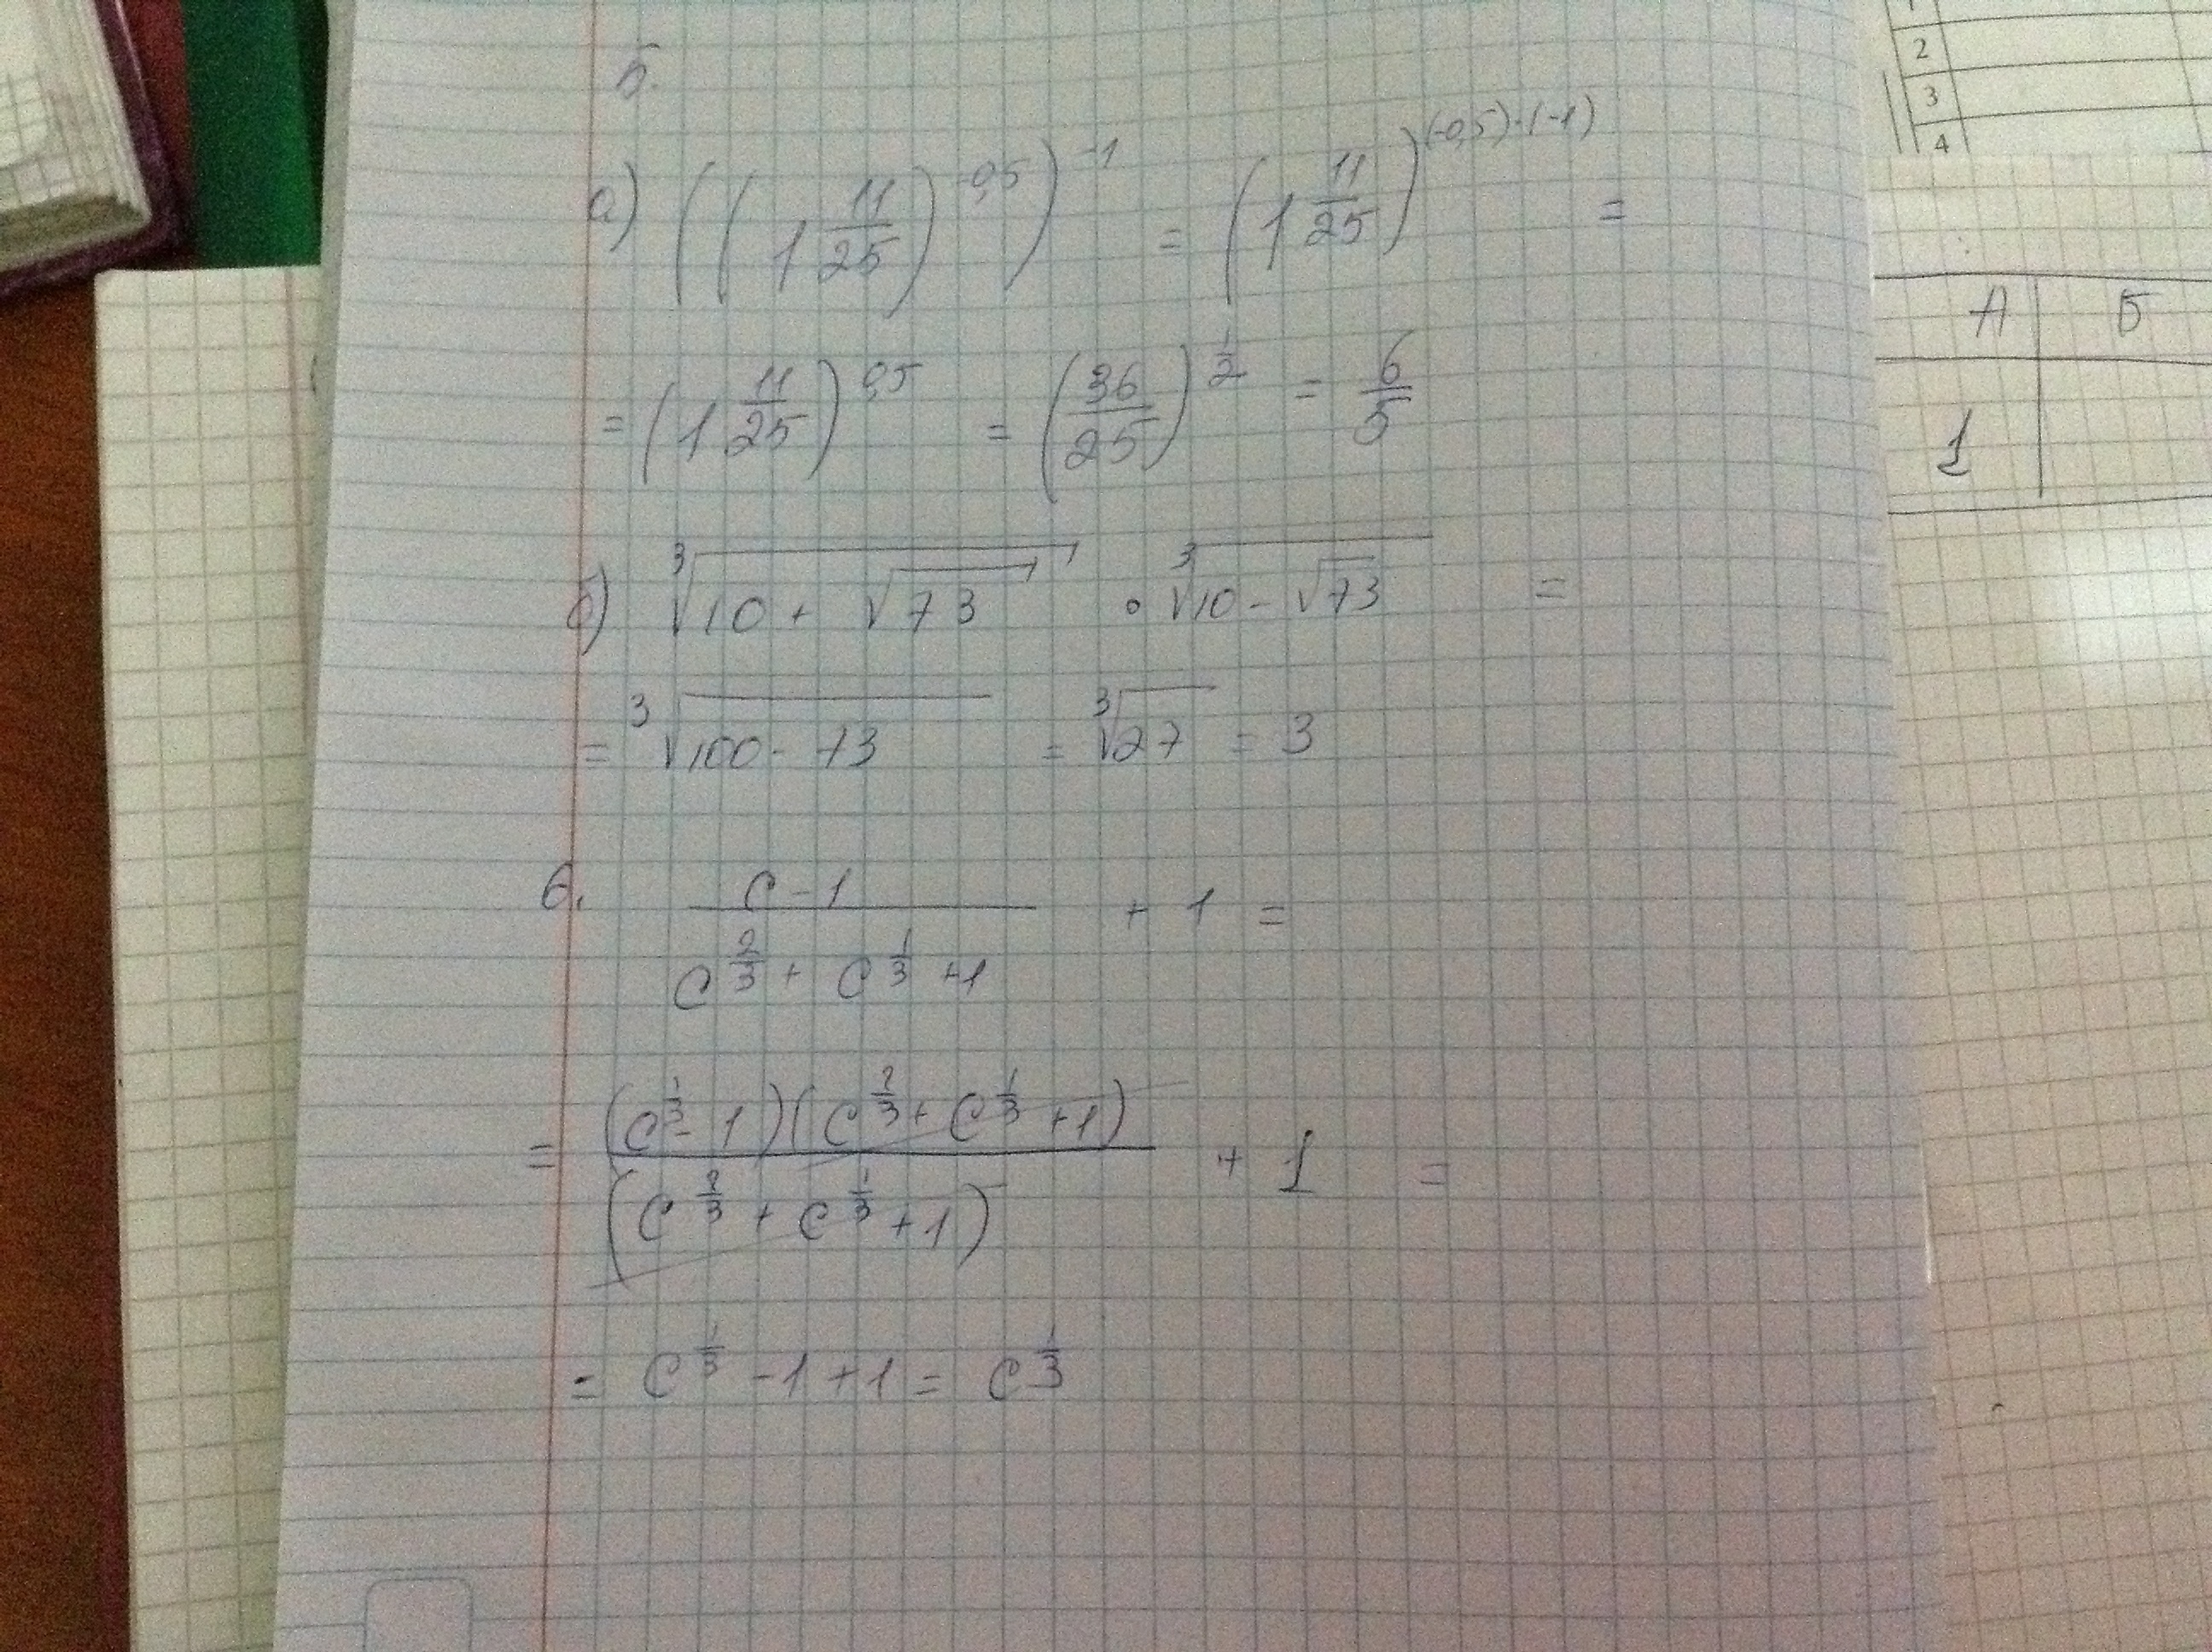 5.
а) ((1 11/25)^-0,5)^-1 = (1 11/25)^(-0,5)·(-1) =
= (1 11/25)^0,5 = (36/25)^1/2 = 6/5
б) ∛(10 + √73) · ∛(10 - √73) =
= ∛(100 - 73) = ∛27 = 3
6. (c - 1)/(c^2/3 + c^1/3 + 1) + 1 =
= (c^1/3 - 1)(c^2/3 + c^1/3 + 1)/(c^2/3 + c^1/3 + 1) + 1 =
= c^1/3 - 1 + 1 = c^1/3
1
2
3
4
А Б
1